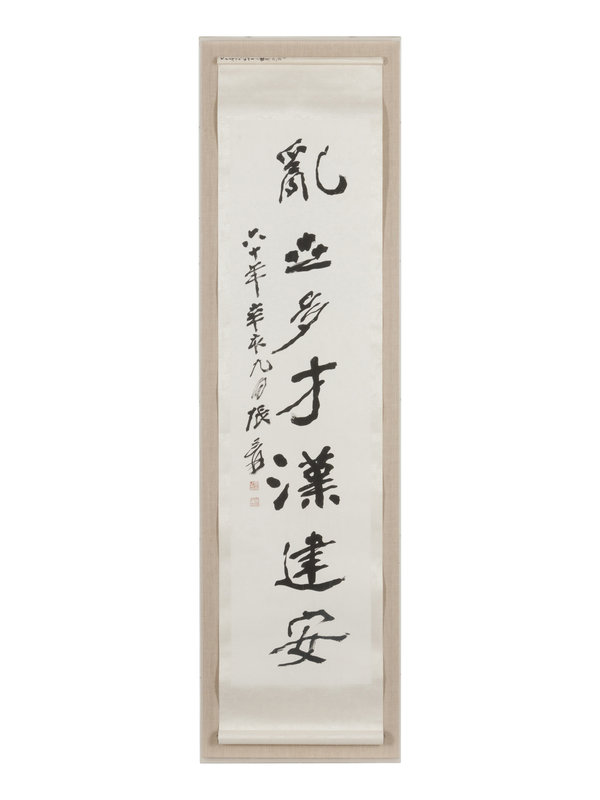 亂世多才漢建安
六十年辛亥九月張爰